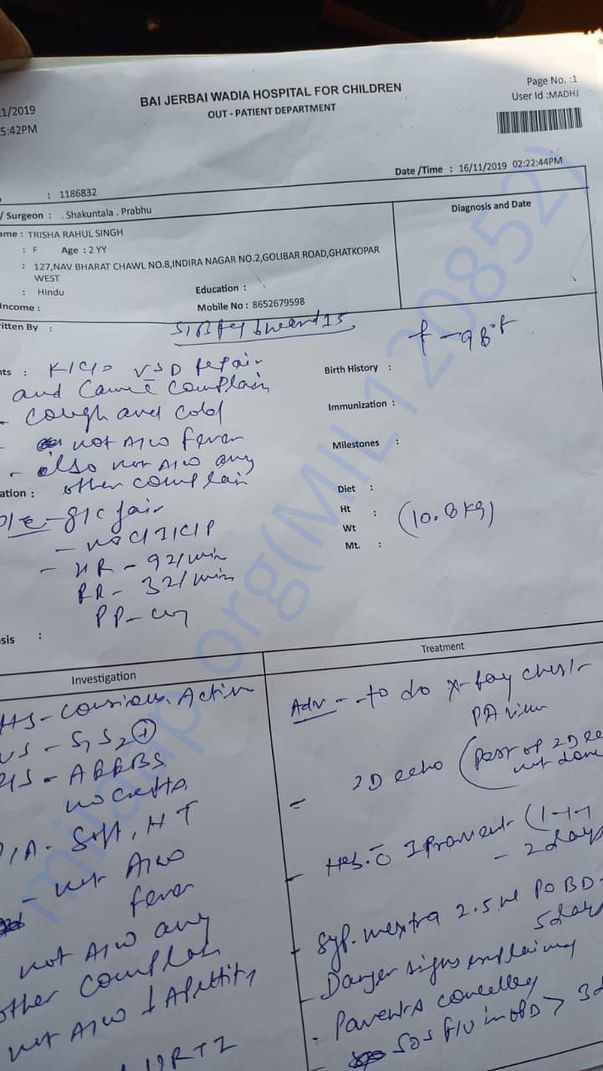 BAI JERBAI WADIA HOSPITAL FOR CHILDREN
OUT - PATIENT DEPARTMENT
Page No. :1
User Id :MADHJ
1/2019
5:42PM
Date /Time : 16/11/2019 02:22:44PM
: 1186832
/ Surgeon : . Shakuntala . Prabhu
Diagnosis and Date
ame : TRISHA RAHUL SINGH
: F Age : 2 YY
: 127,NAV BHARAT CHAWL NO.8,INDIRA NAGAR NO.2,GOLIBAR ROAD,GHATKOPAR
WEST
: Hindu Education :
Income : Mobile No : 8652679598
itten By :
f - 98°F
nts : K/C/o VSD repair
Birth History :
and Came c̄ complain
- cough and cold
Immunization :
- not A/w fever
Milestones :
- also not A/w any
other complain
ation :
Diet :
O/E - G/C fair
Ht :
Wt (10.8 kg)
Mt. :
- HR - 92/min
RR - 32/min
PP -
sis :
Investigation
Treatment
Conscious, Active
Adv - - to do X-ray chest
PA view
S - S1S2 +
RS - AEEBS
2D echo (post op 2D ec
not done
P/A - Soft, NT
- not A/w
fever
- 2 days
not A/w any
other complain
Syp. mextra 2.5 ml PO BD -
5 days
- Danger signs explain
not A/w ↓ Apetite
- Parents
- SOS F/U in OPD > 3d
URTI
milaap.org(MIL120852)